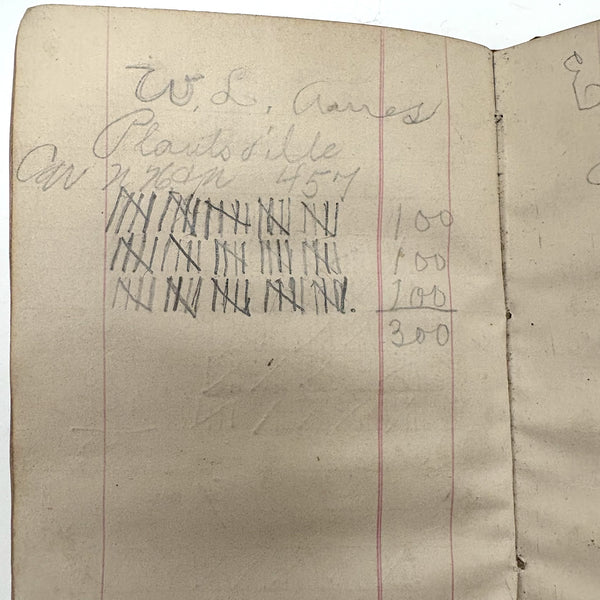 W. L. Ames
Plantsville
Car N 457
100
100
100
300